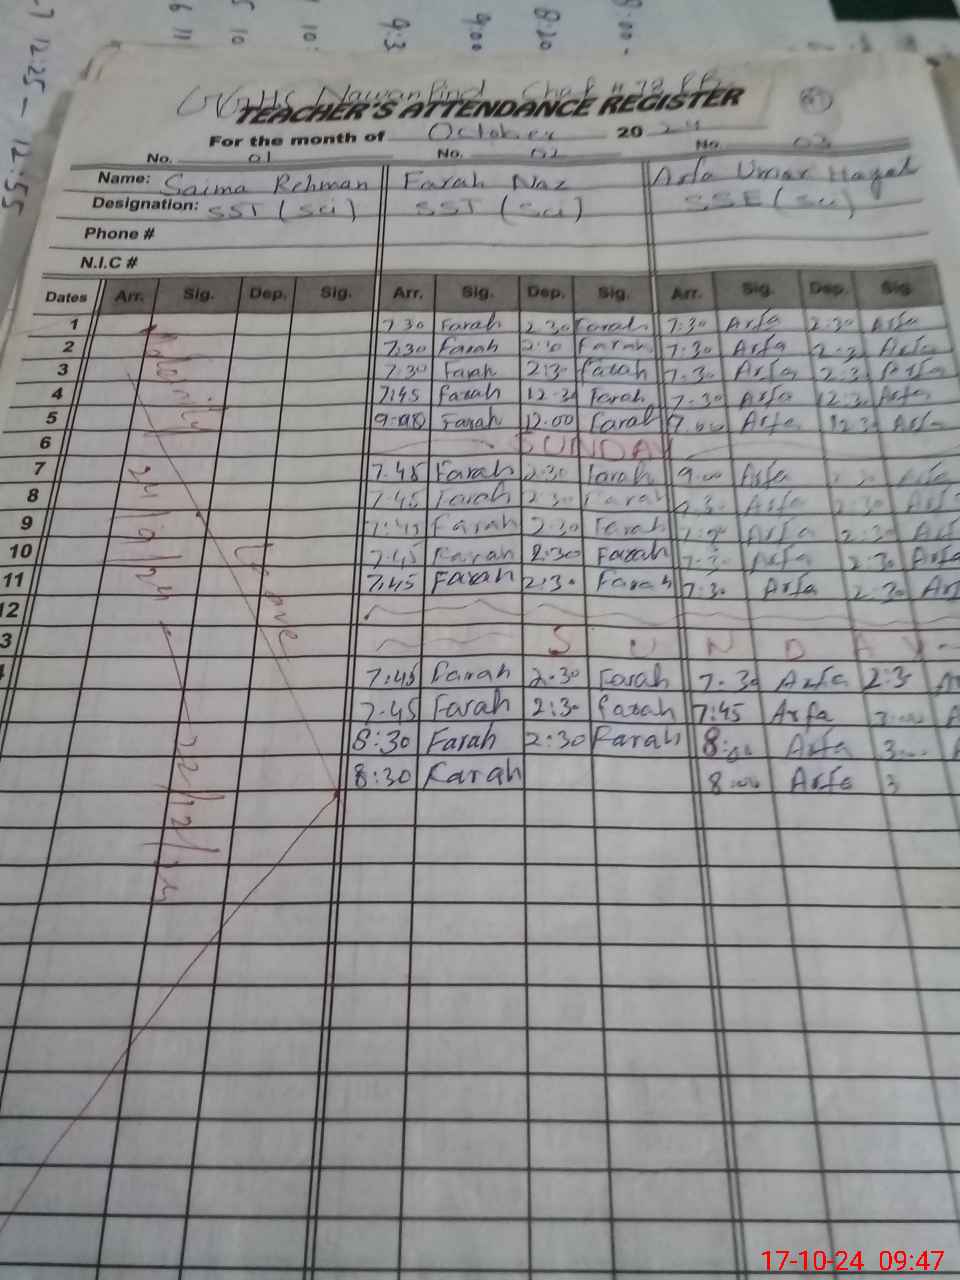 -7 12:25 - 12:55
6 11
5 10
10:
9:3
9:00
8:20
8:00 -
TEACHER'S ATTENDANCE REGISTER
For the month of October 20 24
No. 01 No. 02 No. 03
Name: Saima Rehman Farah Naz Arfa Umar
Designation: SST (Sci) SST (Sci) SSE (Sci)
Phone #
N.I.C #
Dates Arr. Sig. Dep. Sig. Arr. Sig. Dep. Sig. Arr. Sig. Dep. Sig.
1 7:30 Farah 2:30 Farah 7:30 Arfa 2:30 Arfa
2 7:30 Farah 2:30 Farah 7:30 Arfa 2:3 Arfa
3 7:30 Farah 2:30 Farah 7:30 Arfa 2:3 Arfa
4 7:45 Farah 12:30 Farah 7:30 Arfa 12:3 Arfa
5 9:00 Farah 12:00 Farah 9:00 Arfa 12:3 Arfa
6 SUNDAY
7 7:45 Farah 2:30 Farah 9:00 Arfa Arfa
8 7:45 Farah 2:30 Farah Arfa 2:30 Arf
9 7:45 Farah 2:30 Farah Arfa 2:30 Arf
10 7:45 Farah 2:30 Farah 7:3 Arfa 2:30 Arfa
11 7:45 Farah 2:30 Farah 7:30 Arfa 2:30 Arf
12
3 SUNDAY
7:45 Farah 2:30 Farah 7:30 Arfa 2:3 Ar
7:45 Farah 2:30 Farah 7:45 Arfa 3:00 A
8:30 Farah 2:30 Farah 8:00 Arfa 3:00
8:30 Farah 8:00 Arfa 3
24/9/24
leave
22/12/24
17-10-24 09:47